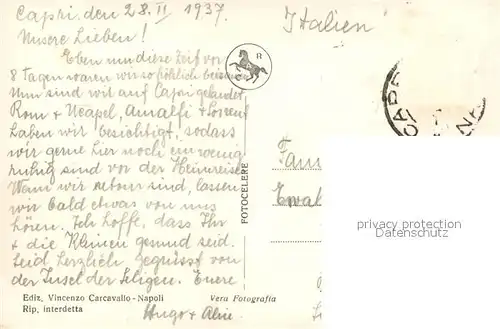 Capri, den 28. II 1937.
Italien
Unsere Lieben!
Eben um diese Zeit vor
8 Tagen waren wir so fröhlich beisammen
Nun sind wir auf Capri gelandet
Rom & Neapel, Amalfi & Sorrent
haben wir besichtigt, sodass
wir gerne hier noch ein wenig
ruhig sind vor der Heimreise
Wann wir retour sind, lassen
wir bald etwas von uns
hören. Ich hoffe, dass Ihr
& die Kleinen gesund seid.
Seid herzlich gegrüsst von
der Insel der Seligen. Euere
Hugo & Aline
R
CAPR
FOTOCELERE
Fam
Ewal
privacy protection
Vera Fotografia
Ediz. Vincenzo Carcavallo - Napoli
Rip. interdetta